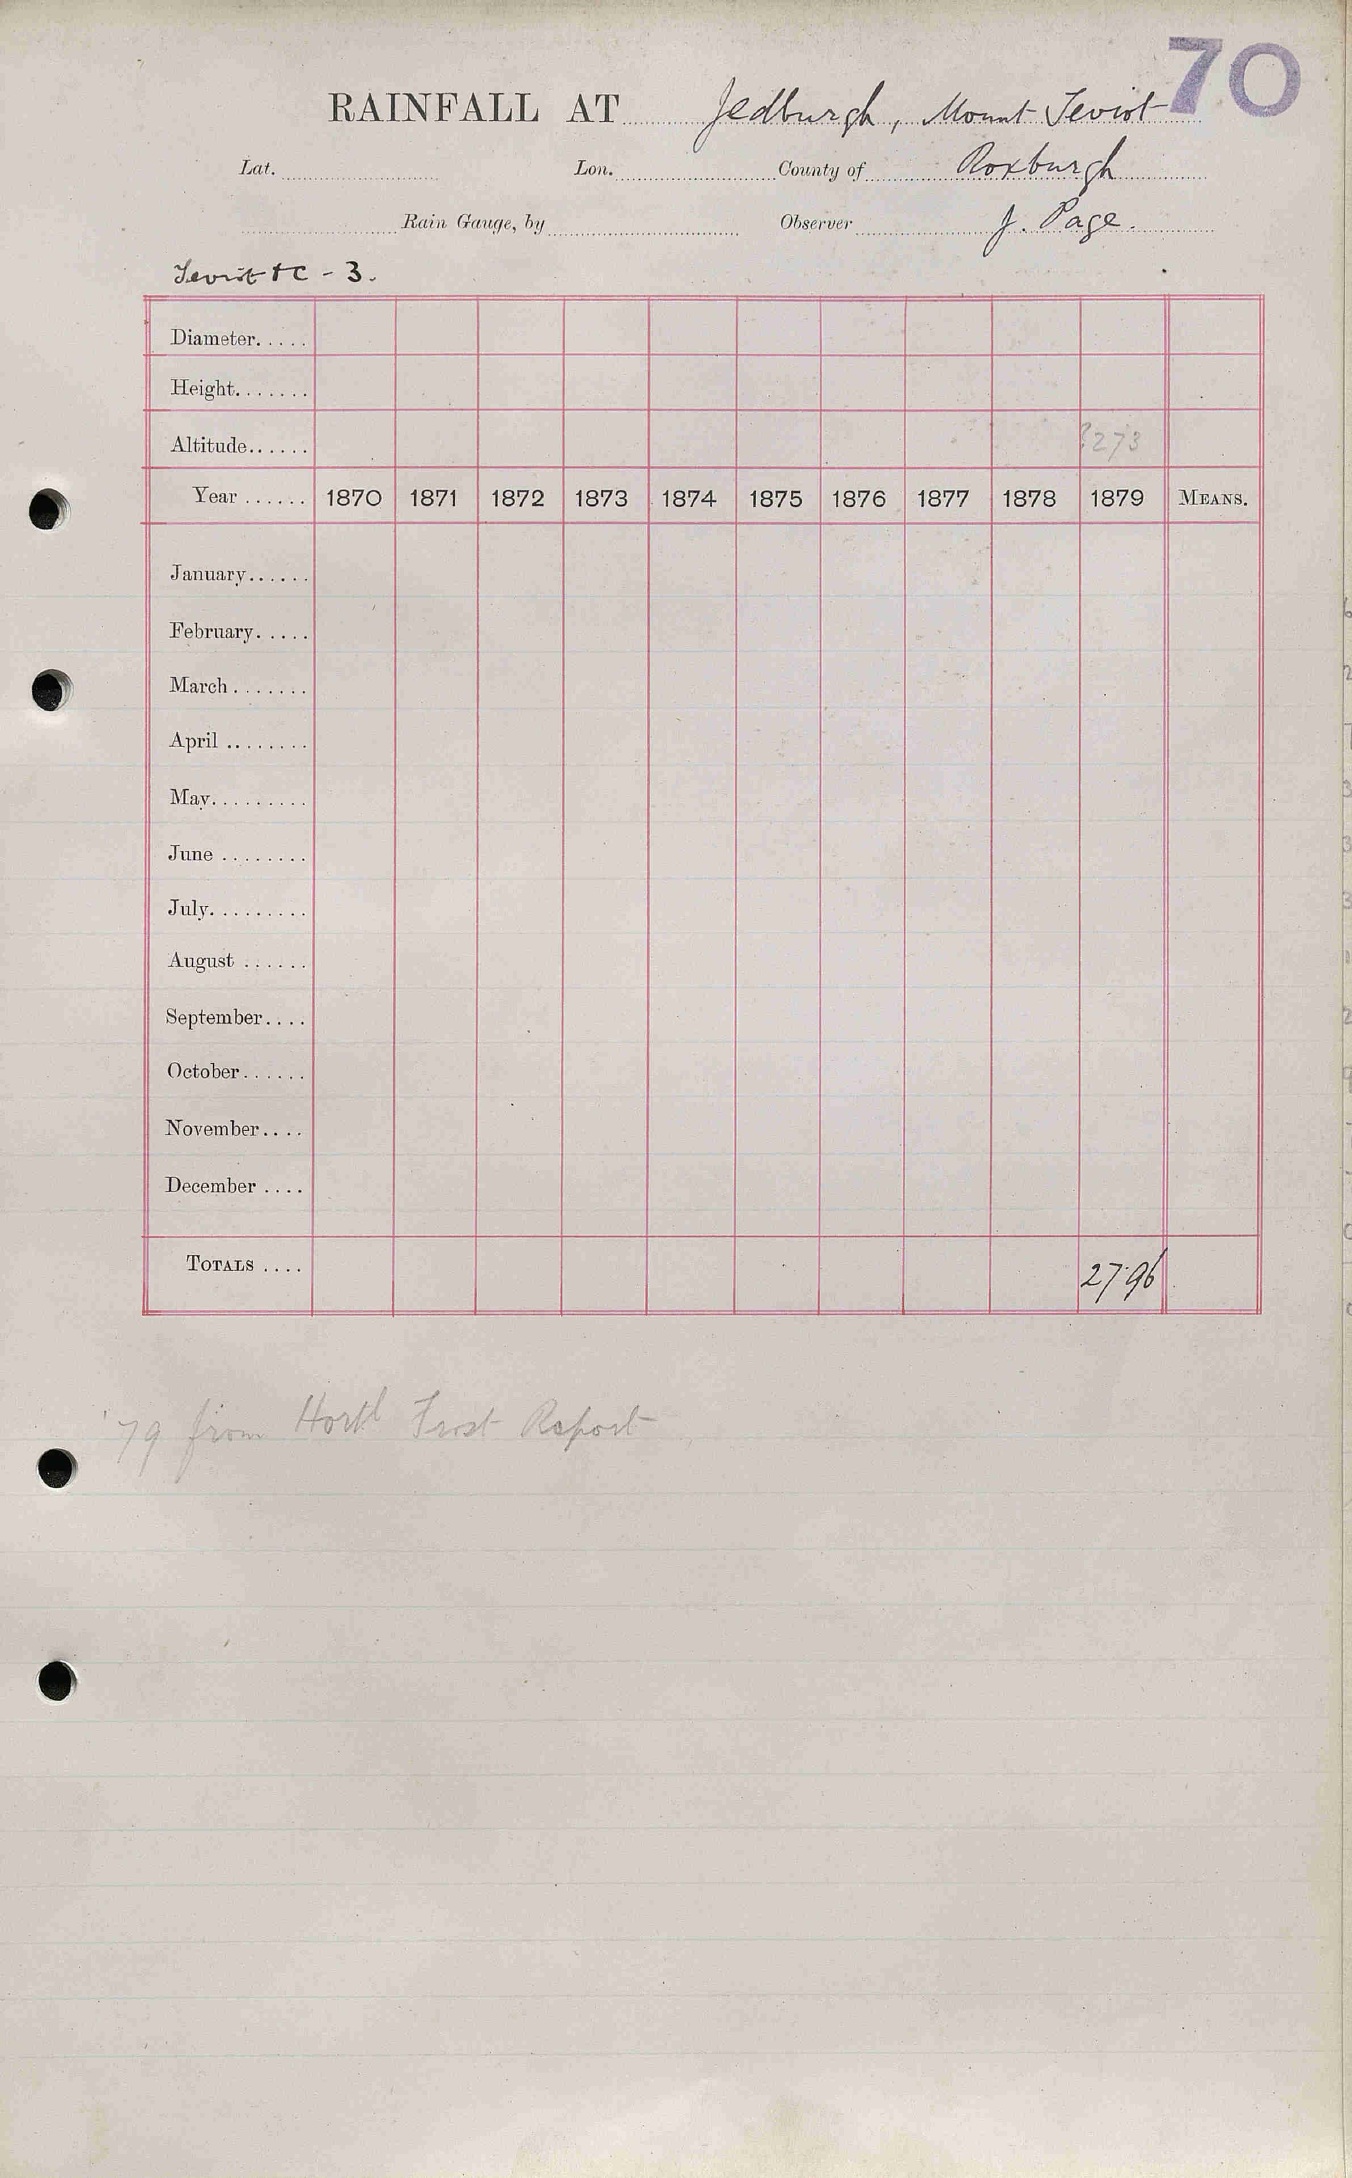 70
RAINFALL AT Jedburgh, Mount Teviot
Lat. Lon. County of Roxburgh
Rain Gauge, by Observer J. Page.
Teviot +C - 3.
Diameter.....
Height.......
Altitude...... ?273
Year ...... 1870 1871 1872 1873 1874 1875 1876 1877 1878 1879 MEANS.
January......
February.....
March .......
April ........
May.........
June ........
July.........
August ......
September....
October......
November....
December ....
TOTALS .... 27.96
'79 from Hortl Frost Report